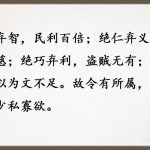 弃智，民利百倍；绝仁弃义
慈；绝巧弃利，盗贼无有；
以为文不足。故令有所属，
少私寡欲。